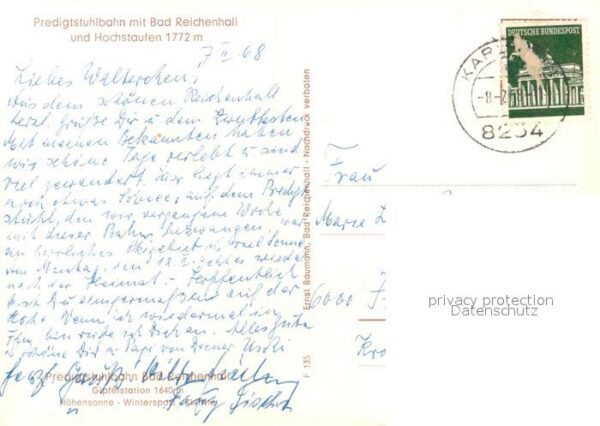 Predigtstuhlbahn mit Bad Reichenhall
und Hochstaufen 1772 m
7 II 68
Liebes Walterchen,
Aus dem schönen Reichenhall
herzl. Grüße Dir u dem
Mit meinen Bekannten haben
wir schöne Tage verlebt u
viel gewandert. Hier liegt immer
noch etwas Schnee, auf dem Predigt
stuhl, den wir vergangene Woche
mit dieser Bahn bezwangen, war
ein herrliches Skigebiet u viel Sonne
Am Montag, den 12.II. geht es wieder
nach der Heimat. - Hoffentlich
bist Du einigermaßen auf der
Höhe. Wenn ich wiedermal in
Ffm. bin rufe ich Dich an. Alles Gute
u schöne Dir u Papi von Deiner
Herzl. Grüße
Predigtstuhlbahn Bad Reichenhall
Gipfelstation 1640 m
Höhensonne - Wintersport
Ernst Baumann, Bad Reichenhall - Nachdruck verboten
F 135
DEUTSCHE BUNDESPOST
8234
Frau
Marie
6000
privacy protection
Datenschutz